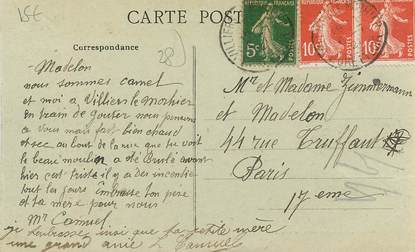 15€
CARTE POST
Correspondance
28
Madelon
nous sommes camel
et moi a Villiers le Morhier
en train de gouter nous pensons
a vous mais fait bien chaud
et sec au bout de la rue que tu voit
le beau moulin a été brulé avant
hier c'est triste il y a des incendies
tout les jours embrasse ton père
et ta mère pour nous
Mr Camuel
je t'embrasse ainsi que ta petite mère
une grand amie L Camuel
REPUBLIQUE FRANÇAISE
5c
REPUBLIQUE FRANÇAISE
10c
10c
Mr et Madame Zimmermann
et Madelon
44 rue Truffaut
Paris
17 eme